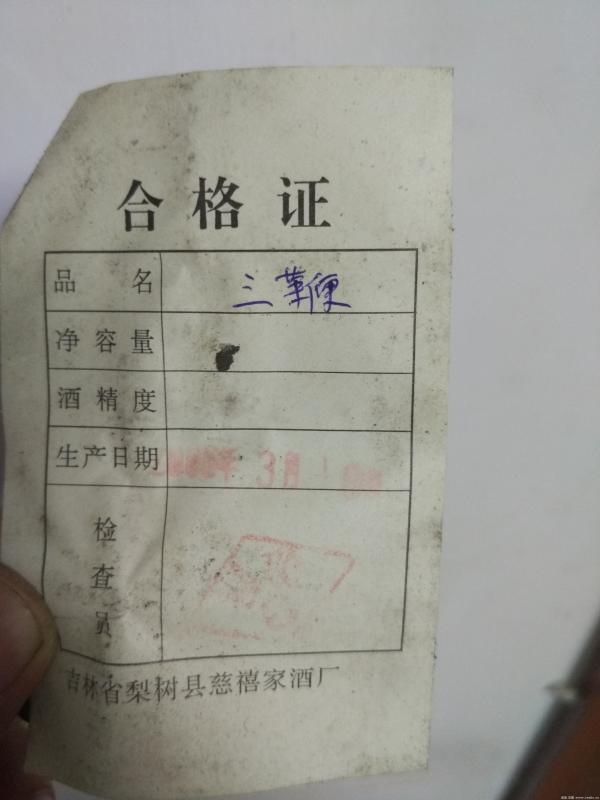 合格证
品名 三鞭
净容量
酒精度
生产日期 3月
检查员
吉林省梨树县慈禧家酒厂